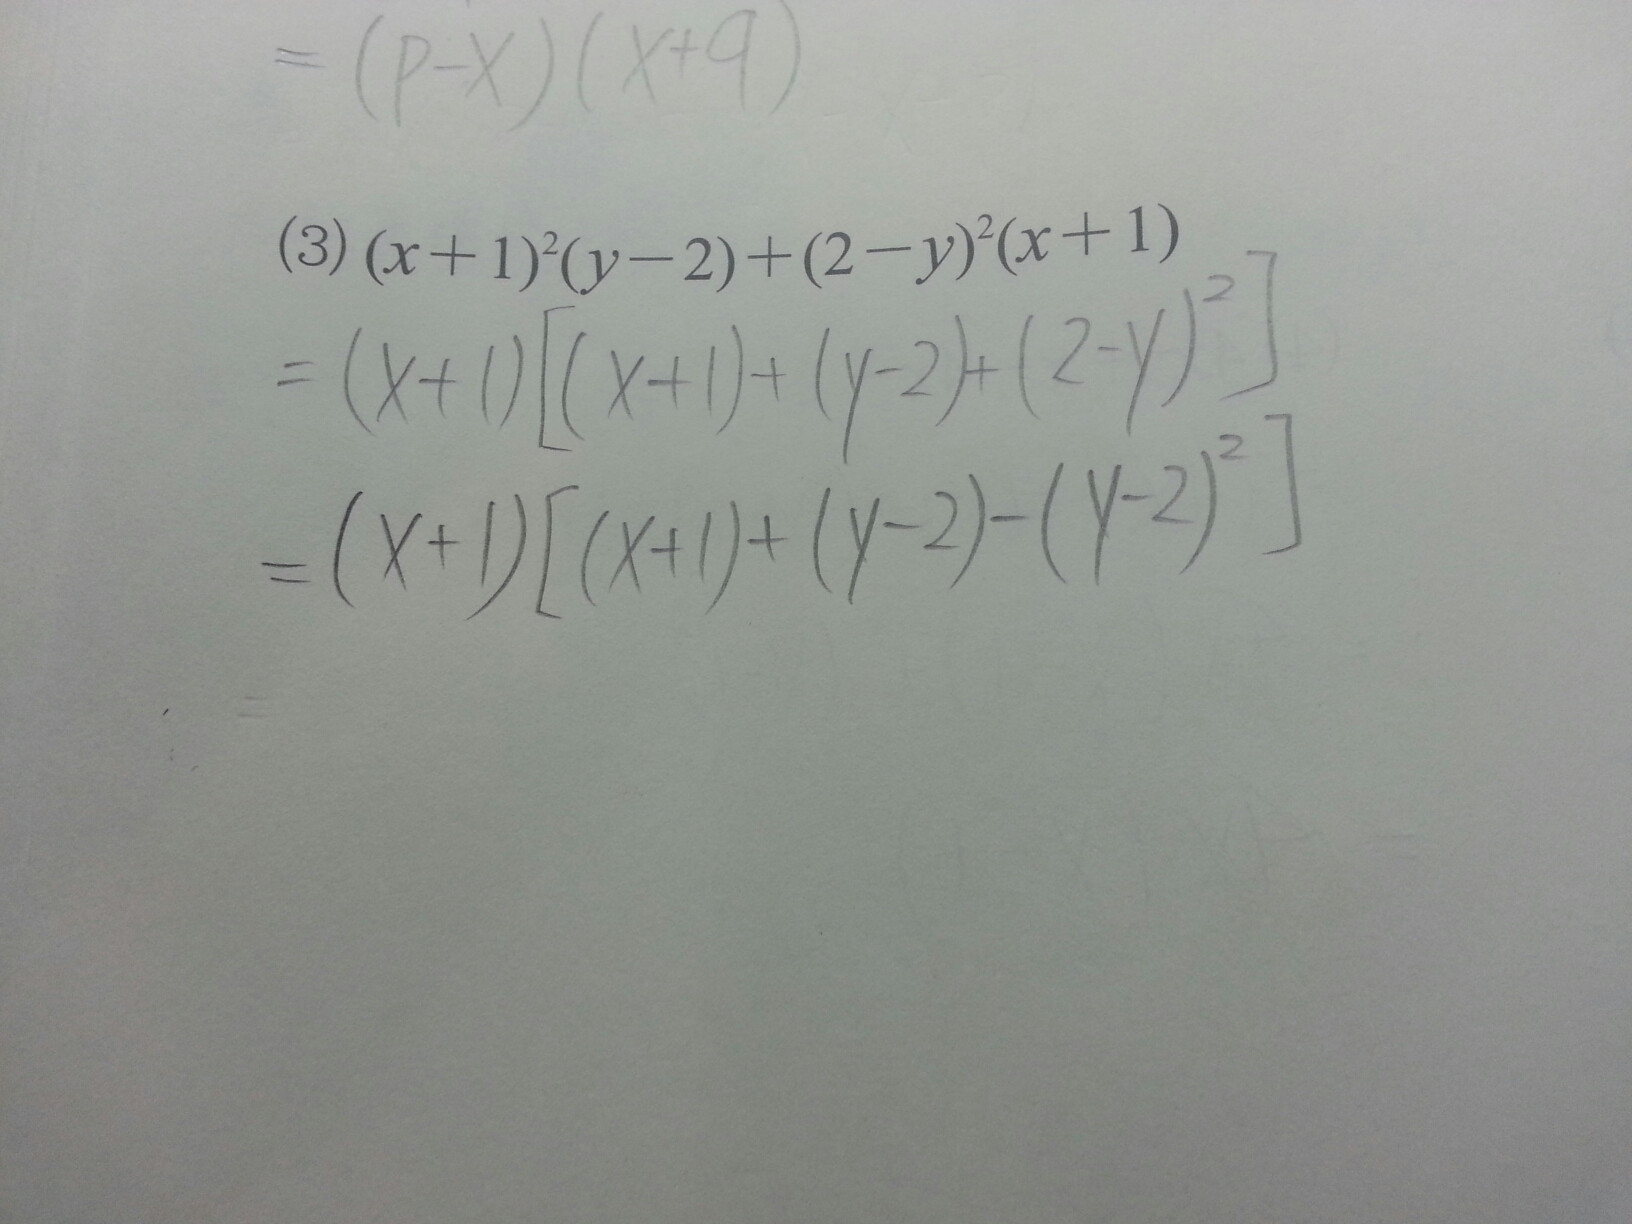 = (p-x)(x+q)
(3) (x+1)²(y-2)+(2-y)²(x+1)
= (x+1)[(x+1)+(y-2)+(2-y)²]
= (x+1)[(x+1)+(y-2)-(y-2)²]
=